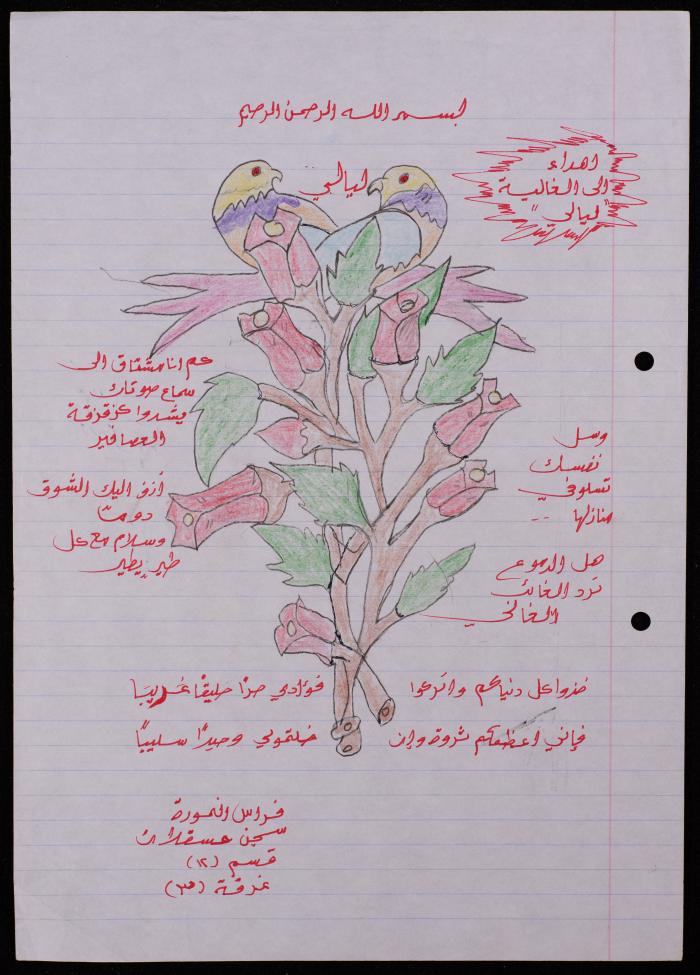 بسم الله الرحمن الرحيم
اهداء
الى الغالية
"ليالي"
ليالي
كم انا مشتاق الى
سماع صوتك
يشدوا كزقزقة
العصافير
أزف اليك الشوق
دومًا
وسلام مع كل
طير يطير
وسل
نفسك
تسلوني
منازلها --
هل الدموع
ترد الغائب
الغالي
خذوا كل دنياكم واتركوا فؤادي حرًا طليقًا غريبًا
فإني اعظمكم ثروة وإن خلتموني وحيدًا سليبًا
فراس النمورة
سجن عسقلان
قسم (١٢)
غرفة (٣٥)